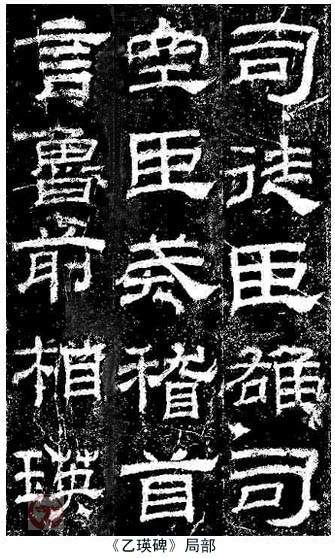 司徒臣雄司
空臣戒稽首
言魯前相瑛
《乙瑛碑》局部